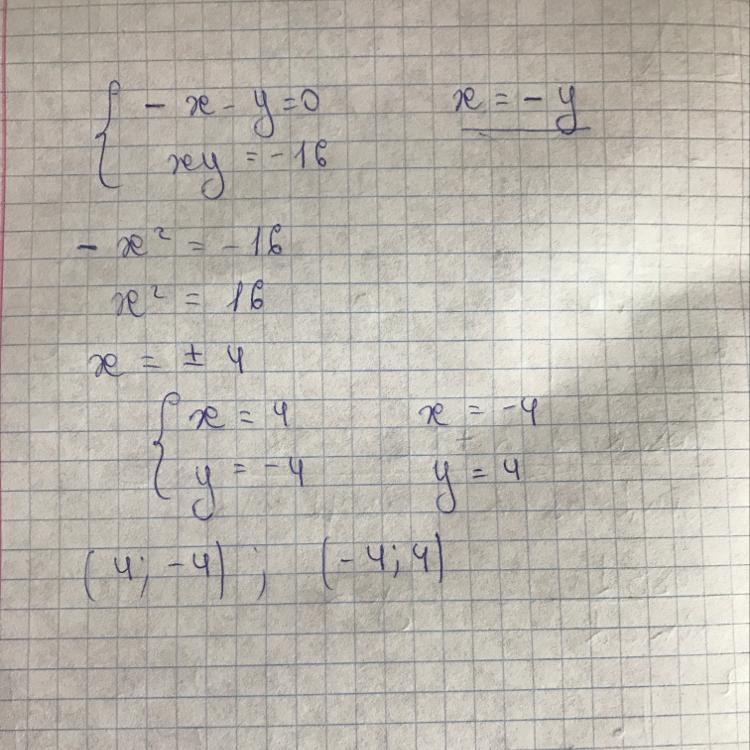 - x - y = 0        x = - y
xy = -16
- x² = -16
x² = 16
x = ± 4
x = 4        x = -4
y = -4        y = 4
(4; -4) ; (-4; 4)